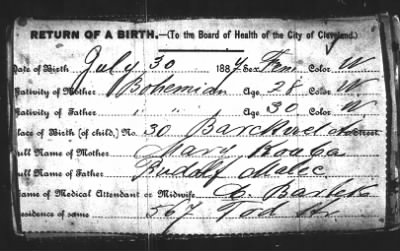 RETURN OF A BIRTH,—(To the Board of Health of the City of Cleveland.)
Date of Birth July 30 1887 Sex Fem Color W
Nativity of Mother Bohemian Age 28 Color W.
Nativity of Father " " Age 30 Color W
Place of Birth (of child,) No. 30 Street
Full Name of Mother Mary Kouba
Full Name of Father Rudolf Malec
Name of Medical Attendant or Midwife C.
Residence of same 567